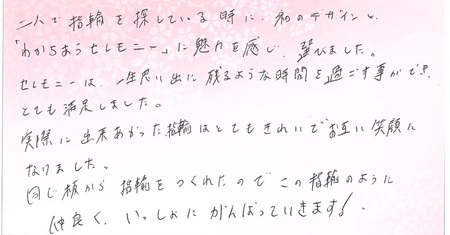 二人で指輪を探している時に、和のデザインと、
「わかちあうセレモニー」に魅力を感じ、選びました。
セレモニーは、一生思い出に残るような時間を過ごす事ができ、
とても満足しました。
実際に出来あがった指輪はとてもきれいでお互い笑顔に
なりました。
同じ板から指輪をつくれたのでこの指輪のように
仲良く、いっしょにがんばっていきます!